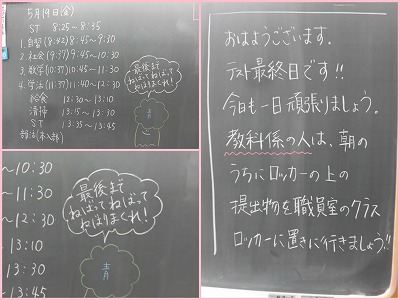 5月19日(金)
ST 8:25~8:35
1. 自習 (8:42) 8:45~9:30
2. 社会 (9:37) 9:45~10:30
3. 数学 (10:37) 10:45~11:30
4. 学活 (11:37) 11:40~12:30
給食 12:30~13:10
清掃 13:15~13:30
ST 13:35~13:45
最後まで
ねばって ねばって
ねばりまくれ!
青
~10:30
~11:30
~12:30
~13:10
13:30
13:45
最後まで
ねばって ねばって
ねばりまくれ!
青
おはようございます。
テスト最終日です!!
今日も一日頑張りましょう。
教科係の人は、朝の
うちにロッカーの上の
提出物を職員室のクラス
ロッカーに置きに行きましょう!!